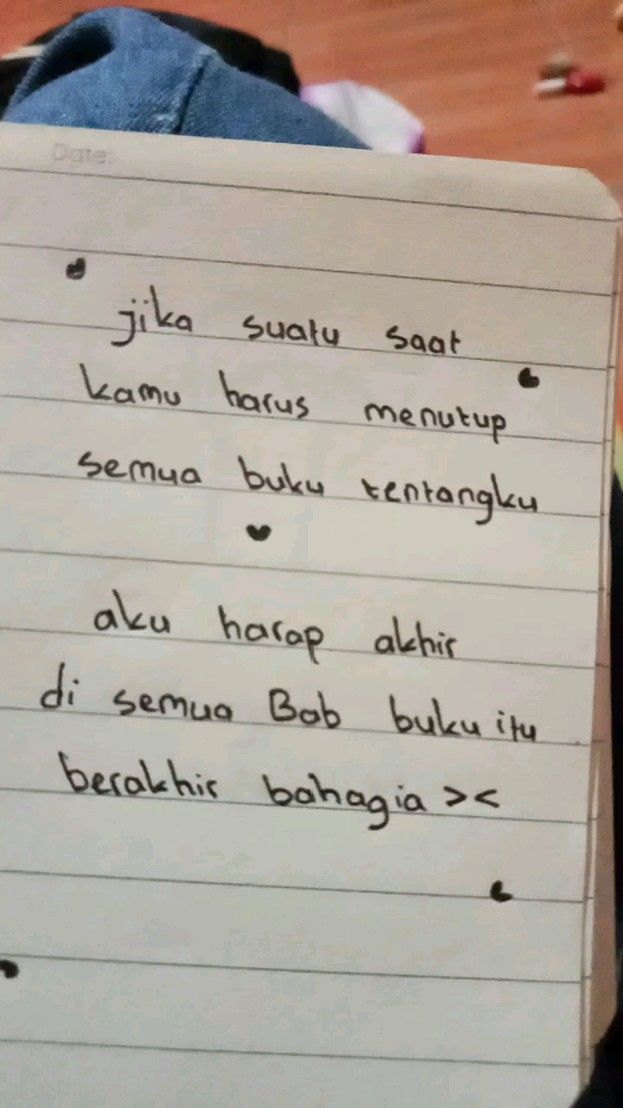 Date:
jika suatu saat
kamu harus menutup
semua buku tentangku
aku harap akhir
di semua Bab buku itu
berakhir bahagia ><